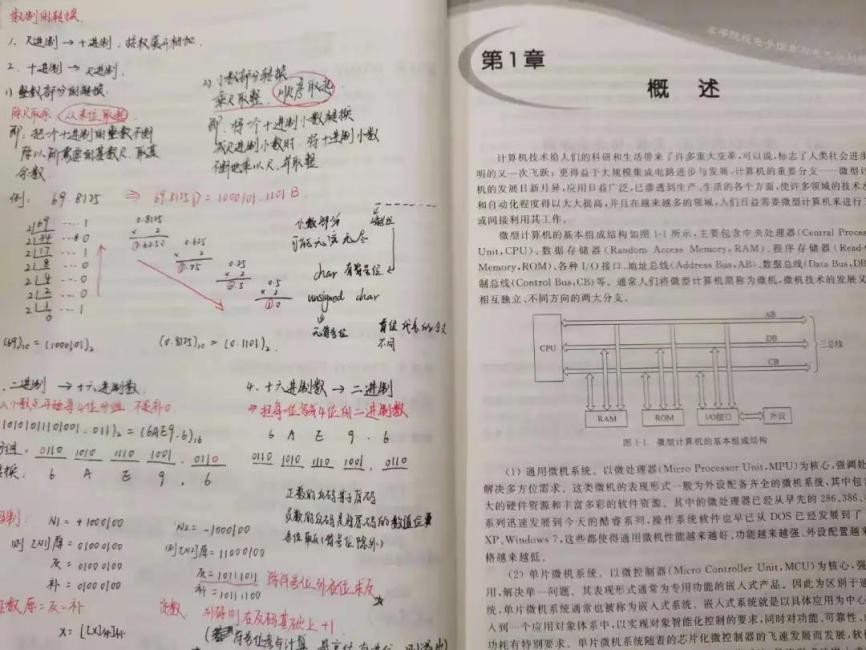 数制的转换
1. R进制 → 十进制, 按权展开相加.
2. 十进制 → R进制.
1) 整数部分的转换
除R取余, 从末位取起
即: 把一个十进制的整数不断
除以所需要的基数R, 取其
余数.
2) 小数部分转换
乘R取整. 顺序取起
即: 将一个十进制小数转换
成R进制小数时, 将十进制小数
不断地乘以R, 并取整
例: 69.8125 ⇒ 69.8125D = 1000101.1101B
2 69 ... 1
2 34 ... 0
2 17 ... 1
2 8 ... 0
2 4 ... 0
2 2 ... 0
2 1 ... 1
0
0.8125
× 2
1.6250
0.625
× 2
1.25
0.25
× 2
0.5
0.5
× 2
1.0
小数部分
可能无法无尽
char 有符号位
unsigned char
无符号位
首位代表的含义
不同
(69)₁₀ = (1000101)₂
(0.8125)₁₀ = (0.1101)₂
二进制 → 十六进制数
4. 十六进制数 → 二进制
小数点开始每4位分组 不足补0
⇒ 把每一位写成4位的二进制数
1010101101001.011)₂ = (6AE9.6)₁₆
0110 1010 1110 1001 . 0110
6 A E 9 . 6
6 A E 9 . 6
0110 1010 1110 1001 . 0110
正数的反码等于原码
负数的反码是将原码的数值位
N1 = +1000100
则[N1]原 = 01000100
反 = 01000100
补 = 01000100
正数原=反=补
N2 = -1000100
则[N2]原 = 11000100
反 = 10111011 除符号位外各位求反
补 = 10111100
负数: 补码则在反码基础上 +1
X = [[X]补]补
第1章
概 述
计算机技术给人们的科研和生活带来了许多重大变革,可以说,标志了人类社会进
明的又一次飞跃;更得益于大规模集成电路进步与发展,计算机的重要分支——微型计
机的发展日新月异,应用日益广泛,已渗透到生产、生活的各个方面,使许多领域的技术水
和自动化程度得以大大提高,并且在越来越多的领域,人们日益需要微型计算机来进行
或间接利用其工作。
微型计算机的基本组成结构如图 1-1 所示,主要包含中央处理器(Central Process
Unit,CPU)、数据存储器(Random Access Memory,RAM)、程序存储器(Read-
Memory,ROM)、各种 I/O 接口、地址总线(Address Bus,AB)、数据总线(Data Bus,DB
制总线(Control Bus,CB)等。通常人们将微型计算机简称为微机,微机技术的发展又
相互独立、不同方向的两大分支。
AB
CPU
DB
三总线
CB
RAM
ROM
I/O接口
外设
图 1-1 微型计算机的基本组成结构
(1) 通用微机系统。以微处理器(Micro Processor Unit,MPU)为核心,强调处
解决多方位需求。这类微机的表现形式一般为外设配备齐全的微机系统,其中包
大的硬件资源和丰富多彩的软件资源。其中的微处理器已经从早先的 286、386、
系列迅速发展到今天的酷睿系列,操作系统软件也早已从 DOS 已经发展到了
XP、Windows 7,这些都使得通用微机性能越来越好、功能越来越强、外设配置越来
格越来越低。
(2) 单片微机系统。以微控制器(Micro Controller Unit,MCU)为核心,强
用,解决单一问题。其表现形式通常为专用功能的嵌入式产品。因此为区别于通
统,单片微机系统通常也被称为嵌入式系统。嵌入式系统就是以具体应用为中心
入到一个应用对象体系中,以实现对象智能化控制的要求,同时对功能、可靠性、
功耗有特别要求。单片微机系统随着的芯片化微控制器的飞速发展而发展,软